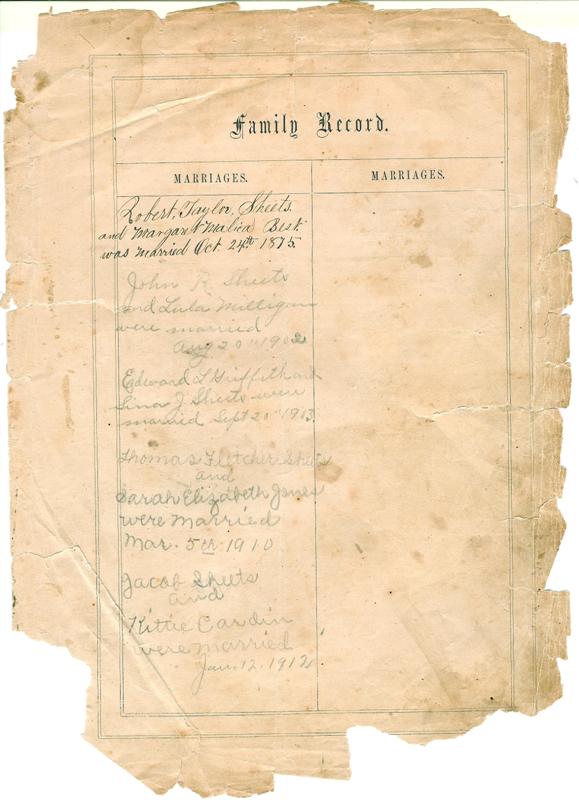 Family Record.
MARRIAGES.
MARRIAGES.
Robert, Taylor, Sheets.
and Margaret Malica Best.
was married Oct. 24th 1875
John R Sheets
and Lula Milligan
were married
Aug 20" 1902
Edward L Griffith and
Lina J Sheets were
married Sept 20" 1903.
Thomas Fletcher Sheets
and
Sarah Elizabeth Jones
were Married
Mar. 5th 1910
Jacob Sheets
and
Kittie Cardin
were married
Jan. 12. 1912